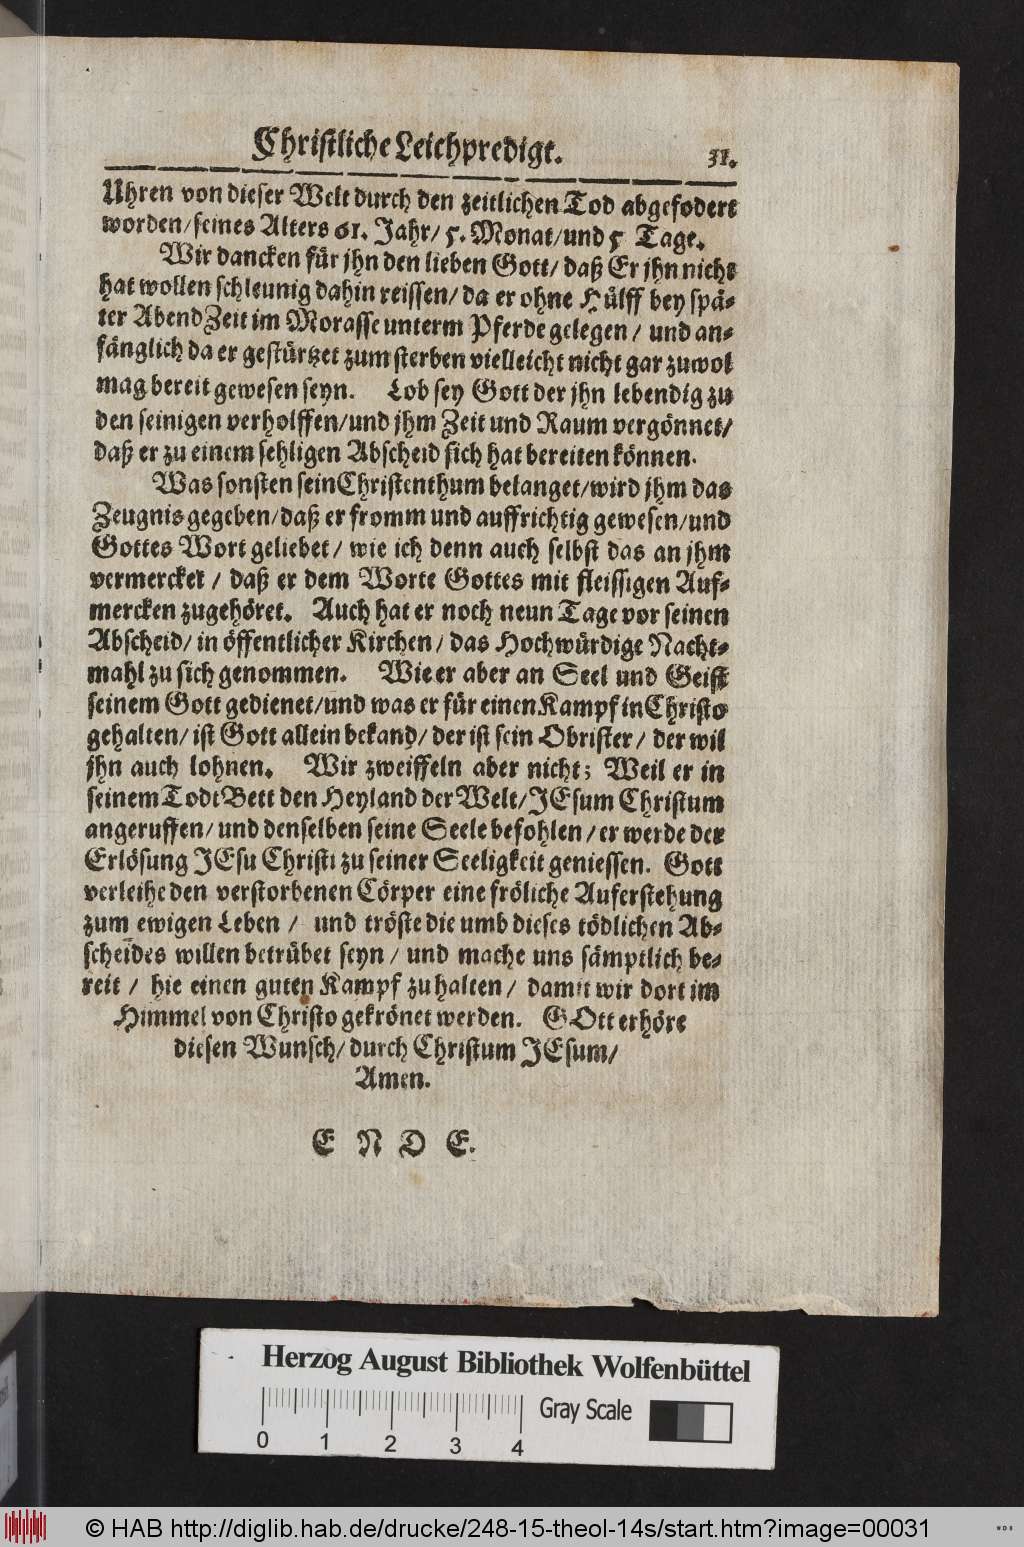 Christliche Leichpredigt. 31.
Uhren von dieser Welt durch den zeitlichen Tod abgefodert
worden/ seines Alters 61. Jahr/ 5. Monat/ und 5 Tage.
Wir dancken für jhn den lieben Gott/ daß Er jhn nicht
hat wollen schleunig dahin reissen/ da er ohne Hülff bey spä-
ter Abend Zeit im Morasse unterm Pferde gelegen/ und an-
fänglich da er gestürtzet zum sterben vielleicht nicht gar zu wol
mag bereit gewesen seyn. Lob sey Gott der jhn lebendig zu
den seinigen verholffen/ und jhm Zeit und Raum vergönnet/
daß er zu einem sehligen Abscheid sich hat bereiten können.
Was sonsten sein Christenthum belanget/ wird jhm das
Zeugnis gegeben/ daß er fromm und auffrichtig gewesen/ und
Gottes Wort geliebet/ wie ich denn auch selbst das an jhm
vermercket/ daß er dem Worte Gottes mit fleissigen Auf-
mercken zugehöret. Auch hat er noch neun Tage vor seinen
Abscheid/ in öffentlicher Kirchen/ das Hochwürdige Nacht-
mahl zu sich genommen. Wie er aber an Seel und Geist
seinem Gott gedienet/ und was er für einen Kampf in Christo
gehalten/ ist Gott allein bekand/ der ist sein Obrister/ der wil
jhn auch lohnen. Wir zweiffeln aber nicht; Weil er in
seinem Todt Bett den Heyland der Welt/ JEsum Christum
angeruffen/ und denselben seine Seele befohlen/ er werde der
Erlösung JEsu Christi zu seiner Seeligkeit geniessen. Gott
verleihe den verstorbenen Cörper eine fröliche Auferstehung
zum ewigen Leben/ und tröste die umb dieses tödlichen Ab-
scheides willen betrübet seyn/ und mache uns sämptlich be-
reit/ hie einen guten Kampf zu halten/ damit wir dort im
Himmel von Christo gekrönet werden. GOtt erhöre
diesen Wunsch/ durch Christum JEsum/
Amen.
E N D E.
Herzog August Bibliothek Wolfenbüttel
Gray Scale
0 1 2 3 4
© HAB http://diglib.hab.de/drucke/248-15-theol-14s/start.htm?image=00031